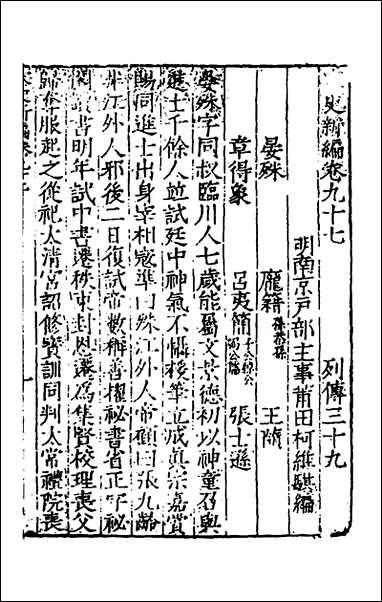 史新編卷九十七　列傳三十九
明南京戶部主事莆田柯維騏編
晏殊　龐籍　王隨
章得象　呂夷簡　張士遜
晏殊字同叔臨川人七歲能屬文景德初以神童召與
進士千餘人並試廷中神氣不懾援筆立成真宗嘉賞
賜同進士出身宰相寇準曰殊江外人帝顧曰張九齡
非江外人邪後二日復試帝數稱善擢祕書省正字祕
閣讀書明年試中書遷太常寺奉禮郎東封恩遷為集賢校理喪父
歸臨川奪服起之從祀太清宮詔修寶訓同判太常禮院喪